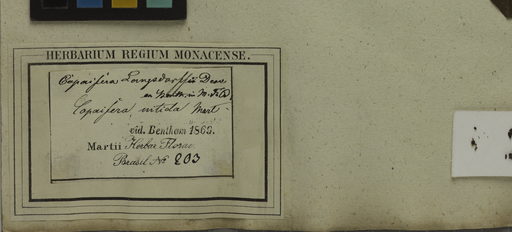 HERBARIUM REGIUM MONACENSE.
Copaifera Langsdorffii Desv
Copaifera nitida Mart
vid. Bentham 1863.
Martii Herbar. Florae
Brasil No 203